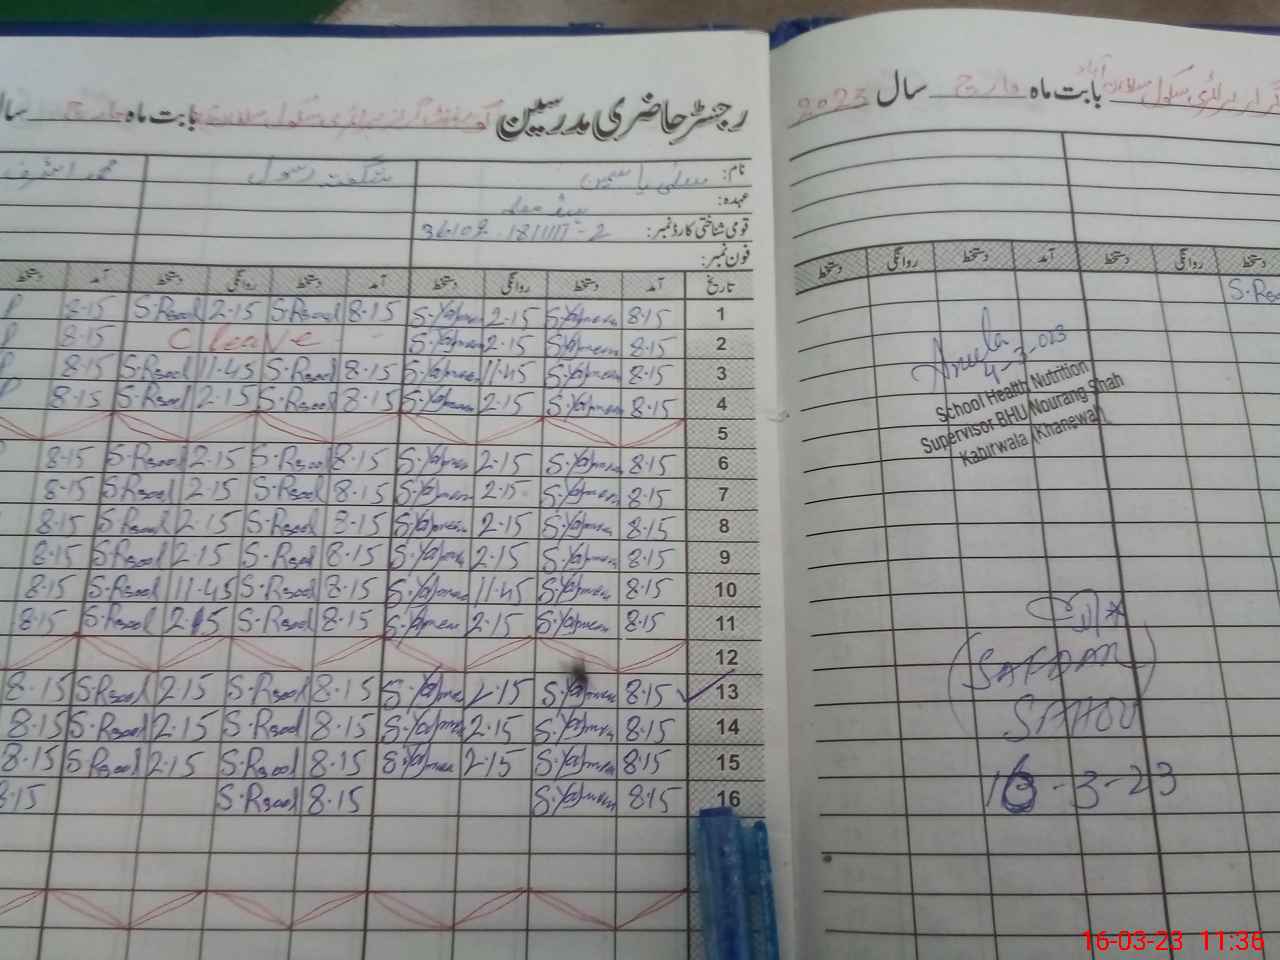 رجسٹر حاضری مدرسین بابت ماہ مارچ سال
نام: سلمیٰ یاسمین شگفتہ رسول محمد اشرف
عہدہ:
قومی شناختی کارڈ نمبر:
فون نمبر:
تاریخ آمد دستخط روانگی دستخط آمد دستخط روانگی دستخط آمد دستخط
1 8.15 S.Yasmeen 2.15 S.Yasmeen 8.15 S.Rsool 2.15 S.Rsool 8.15
2 8.15 S.Yasmeen 2.15 S.Yasmeen - - C leave 8.15
3 8.15 S.Yasmeen 11.45 S.Yasmeen 8.15 S.Rsool 11.45 S.Rsool 8.15
4 8.15 S.Yasmeen 2.15 S.Yasmeen 8.15 S.Rsool 2.15 S.Rsool 8.15
5
6 8.15 S.Yasmeen 2.15 S.Yasmeen 8.15 S.Rsool 2.15 S.Rsool 8.15
7 8.15 S.Yasmeen 2.15 S.Yasmeen 8.15 S.Rsool 2.15 S.Rsool 8.15
8 8.15 S.Yasmeen 2.15 S.Yasmeen 8.15 S.Rsool 2.15 S.Rsool 8.15
9 8.15 S.Yasmeen 2.15 S.Yasmeen 8.15 S.Rsool 2.15 S.Rsool 8.15
10 8.15 S.Yasmeen 11.45 S.Yasmeen 8.15 S.Rsool 11.45 S.Rsool 8.15
11 8.15 S.Yasmeen 2.15 S.Yasmeen 8.15 S.Rsool 2.15 S.Rsool 8.15
12
13 8.15 S.Yasmeen 2.15 S.Yasmeen 8.15 S.Rsool 2.15 S.Rsool 8.15
14 8.15 S.Yasmeen 2.15 S.Yasmeen 8.15 S.Rsool 2.15 S.Rsool 8.15
15 8.15 S.Yasmeen 2.15 S.Yasmeen 8.15 S.Rsool 2.15 S.Rsool 8.15
16 8.15 S.Yasmeen 8.15 S.Rsool 8.15
بابت ماہ مارچ سال 2023
دستخط روانگی دستخط آمد دستخط روانگی دستخط
School Health Nutrition
Supervisor BHU Nourang Shah
Kabirwala (Khanewal)
(SAFDAR)
SAHOO
16-3-23
16-03-23 11:36